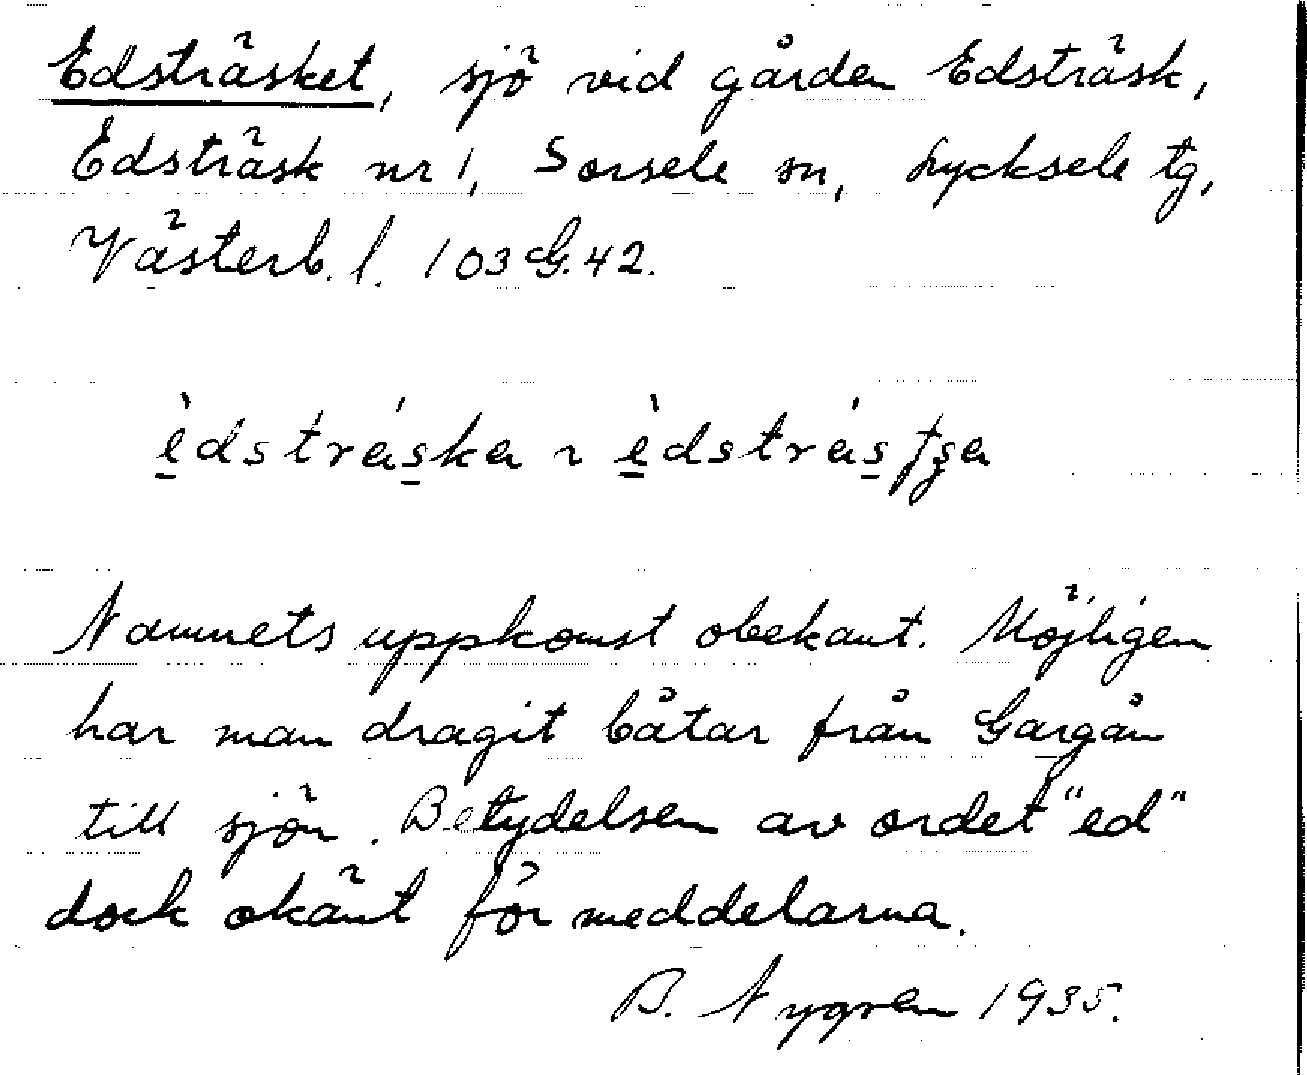 Edsträsket, sjö vid gården Edsträsk,
Edsträsk nr 1, Sorsele sn, Lycksele tg,
Västerb. l. 103 G. 42.
èdstráska ~ èdstrás
Namnets uppkomst obekant. Möjligen
har man dragit båtar från Gargån
till sjön. Betydelsen av ordet "ed"
dock okänt för meddelarna.
B. Nygren 1935.